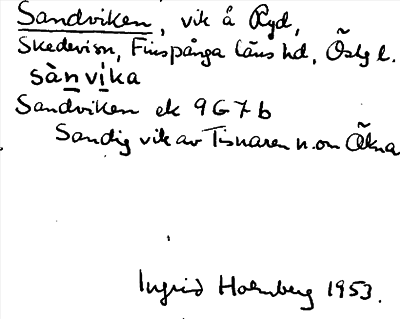 Sandviken, vik å Ryd,
Skedevism, Finspånga läns hd, Östg l.
sànvika
Sandviken ek 9G7b
Sandig vik av Tisnaren n.om Ökna
Ingrid Holmberg 1953.